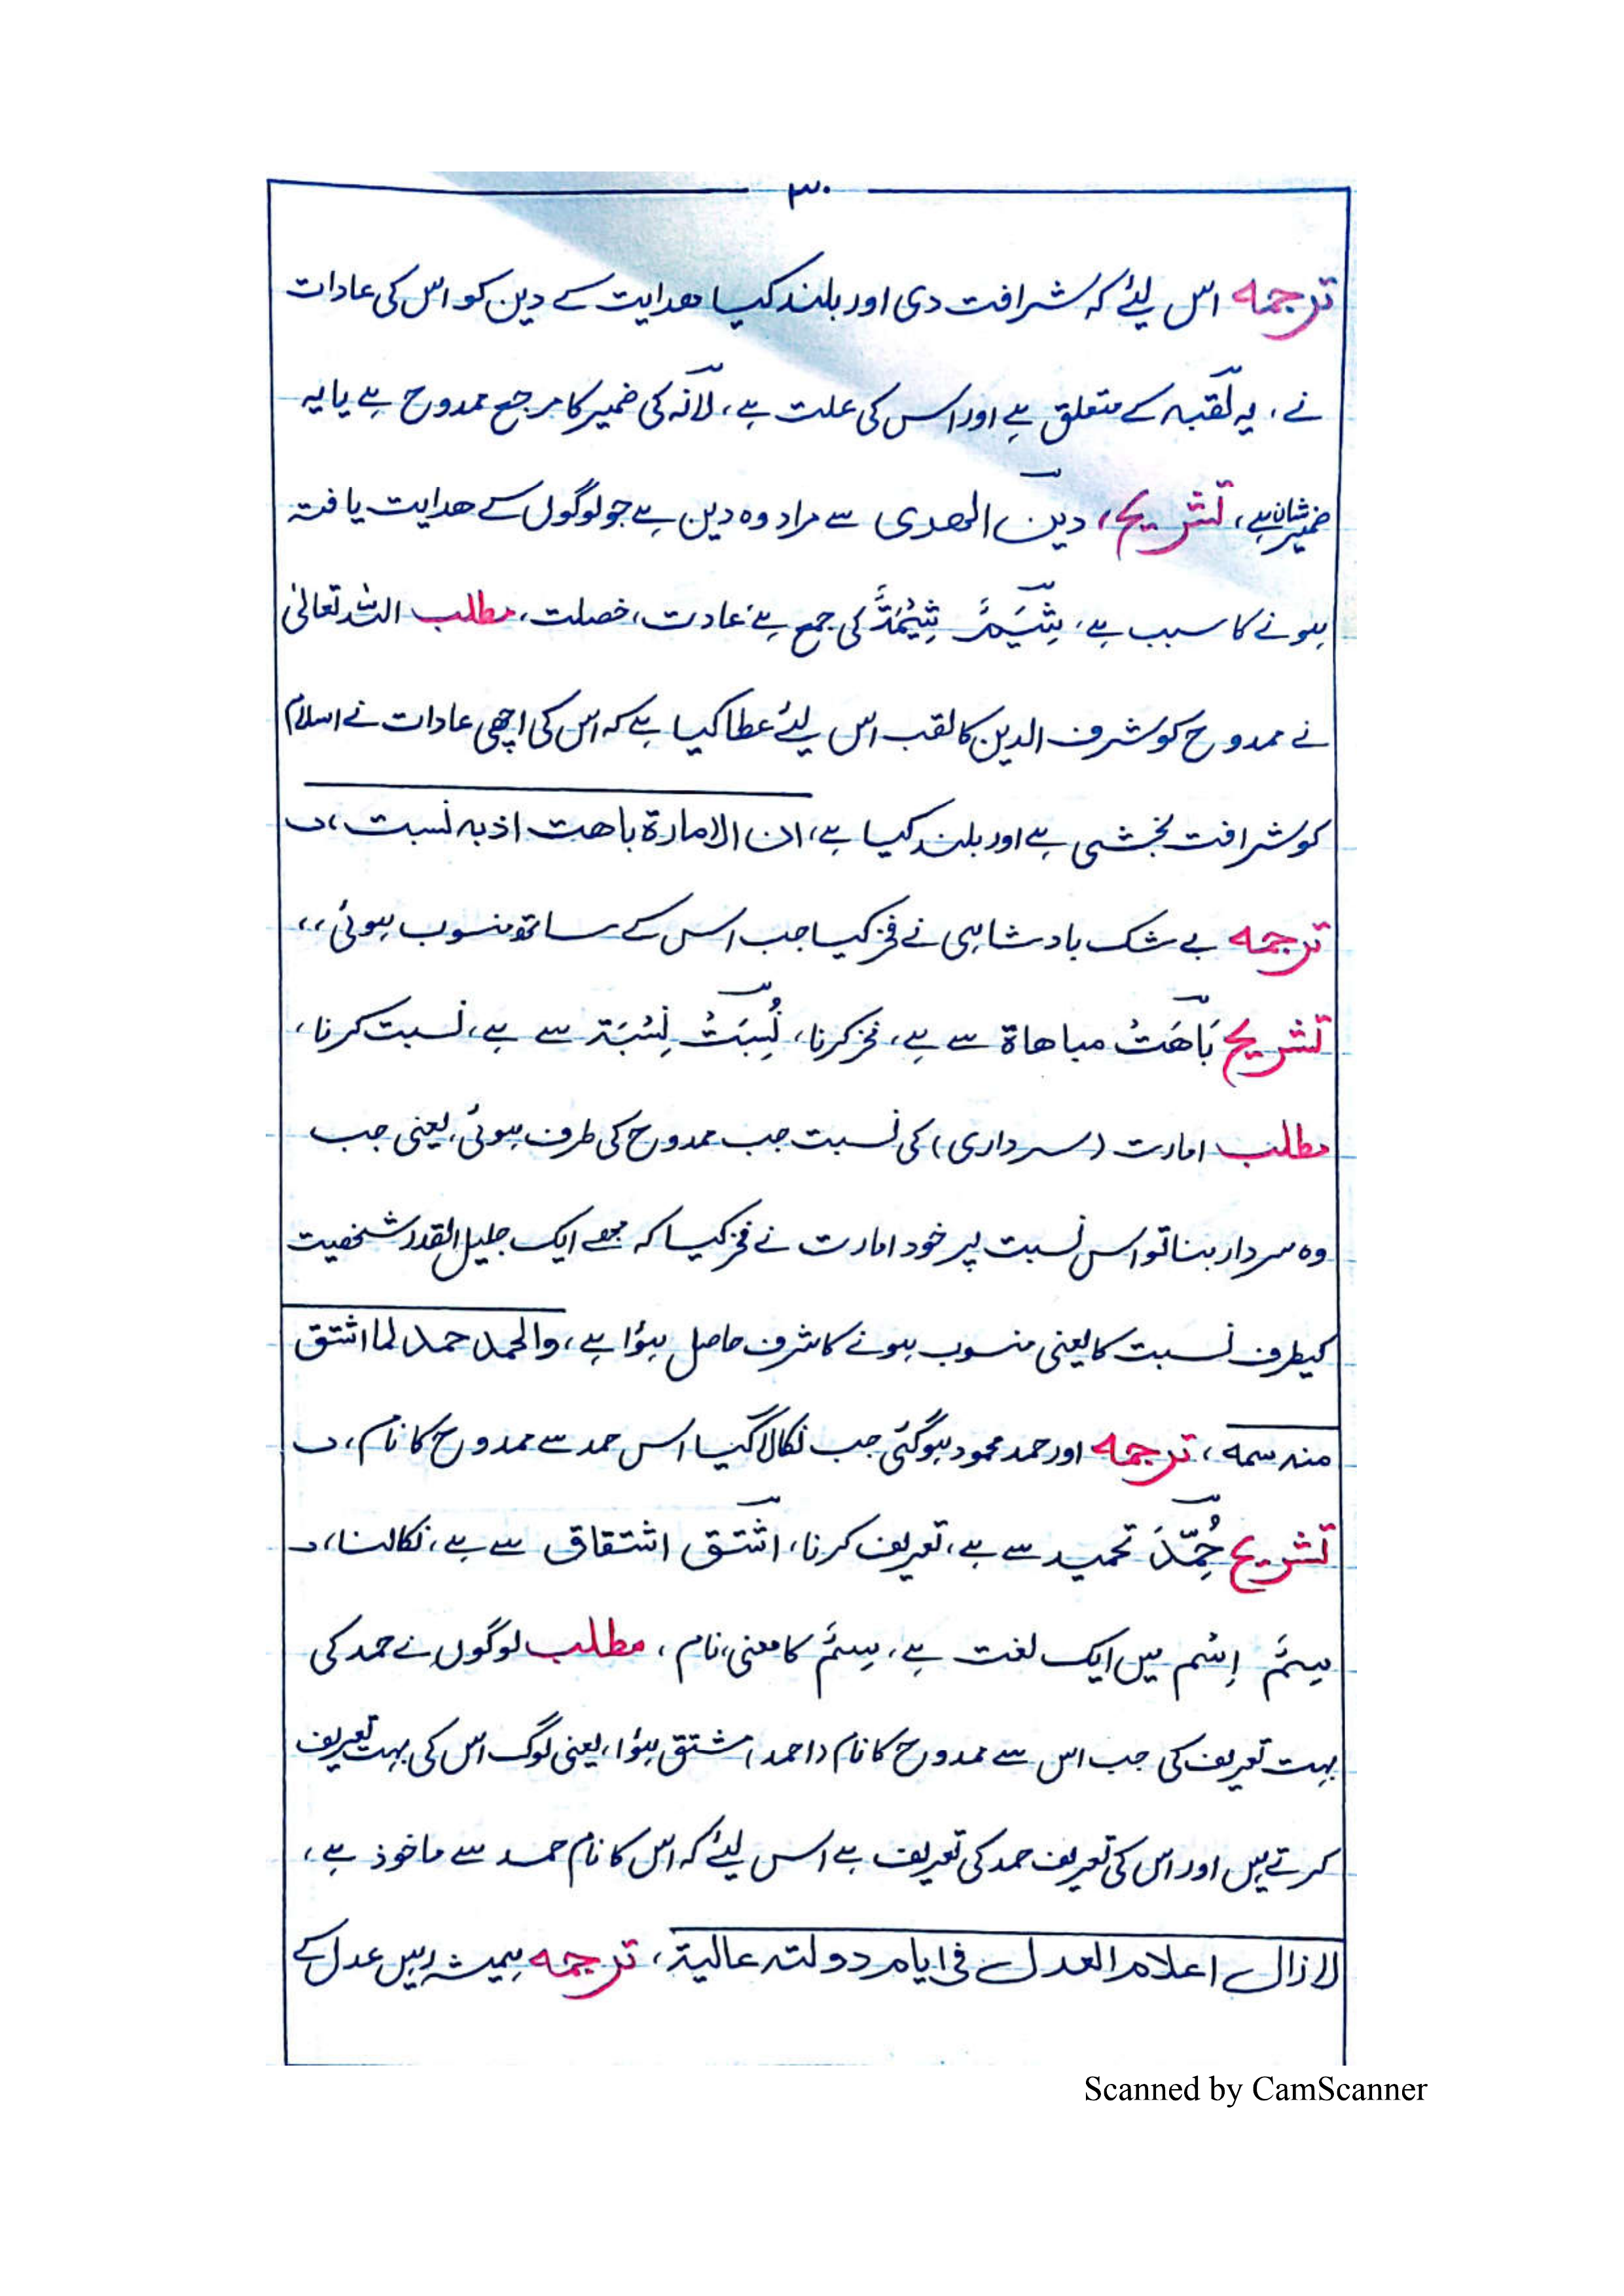 ۳۰
ترجمہ اس لیئے کہ شرافت دی اور بلند کیا ھدایت کے دین کو اس کی عادات
نے، یہ لقبہ کے متعلق ہے اور اس کی علت ہے، لانہ کی ضمیر کا مرجع ممدوح ہے یا یہ
ضمیر شان ہے، تشریح، دین الھدی سے مراد وہ دین ہے جو لوگوں کے ھدایت یافتہ
ہونے کا سبب ہے، شِیَمٌ شِیْمَۃٌ کی جمع ہے عادت، خصلت، مطلب اللہ تعالیٰ
نے ممدوح کو شرف الدین کا لقب اس لیئے عطا کیا ہے کہ اس کی اچھی عادات نے اسلام
کو شرافت بخشی ہے اور بلند کیا ہے، ان الامارۃ باھت اذ بہ نسبت،
ترجمہ بے شک بادشاہی نے فخر کیا جب اس کے ساتھ منسوب ہوئی،،
تشریح بَاھَتْ مباھاۃ سے ہے، فخر کرنا، نُسِبَتْ نِسْبَۃ سے ہے، نسبت کرنا،
مطلب امارت (سرداری) کی نسبت جب ممدوح کی طرف ہوئی، یعنی جب
وہ سردار بنا تو اس نسبت پر خود امارت نے فخر کیا کہ مجھے ایک جلیل القدر شخصیت
کیطرف نسبت کا یعنی منسوب ہونے کا شرف حاصل ہؤا ہے، والحمد حمد لما اشتق
منہ سمہ، ترجمہ اور حمد محمود ہوگئی جب نکالا گیا اس حمد سے ممدوح کا نام،
تشریح حُمِّدَ تحمید سے ہے، تعریف کرنا، اشتق اشتقاق سے ہے، نکالنا،
سِمٌ اِسْم میں ایک لغت ہے، سِمٌ کا معنی، نام، مطلب لوگوں نے حمد کی
بہت تعریف کی جب اس سے ممدوح کا نام (احمد) مشتق ہؤا، یعنی لوگ اس کی بہت تعریف
کرتے ہیں اور اس کی تعریف حمد کی تعریف ہے اس لیئے کہ اس کا نام حمد سے ماخوذ ہے،
لازال اعلام العدل فی ایام دولتہ عالیۃ، ترجمہ ہمیشہ رہیں عدل کے
Scanned by CamScanner